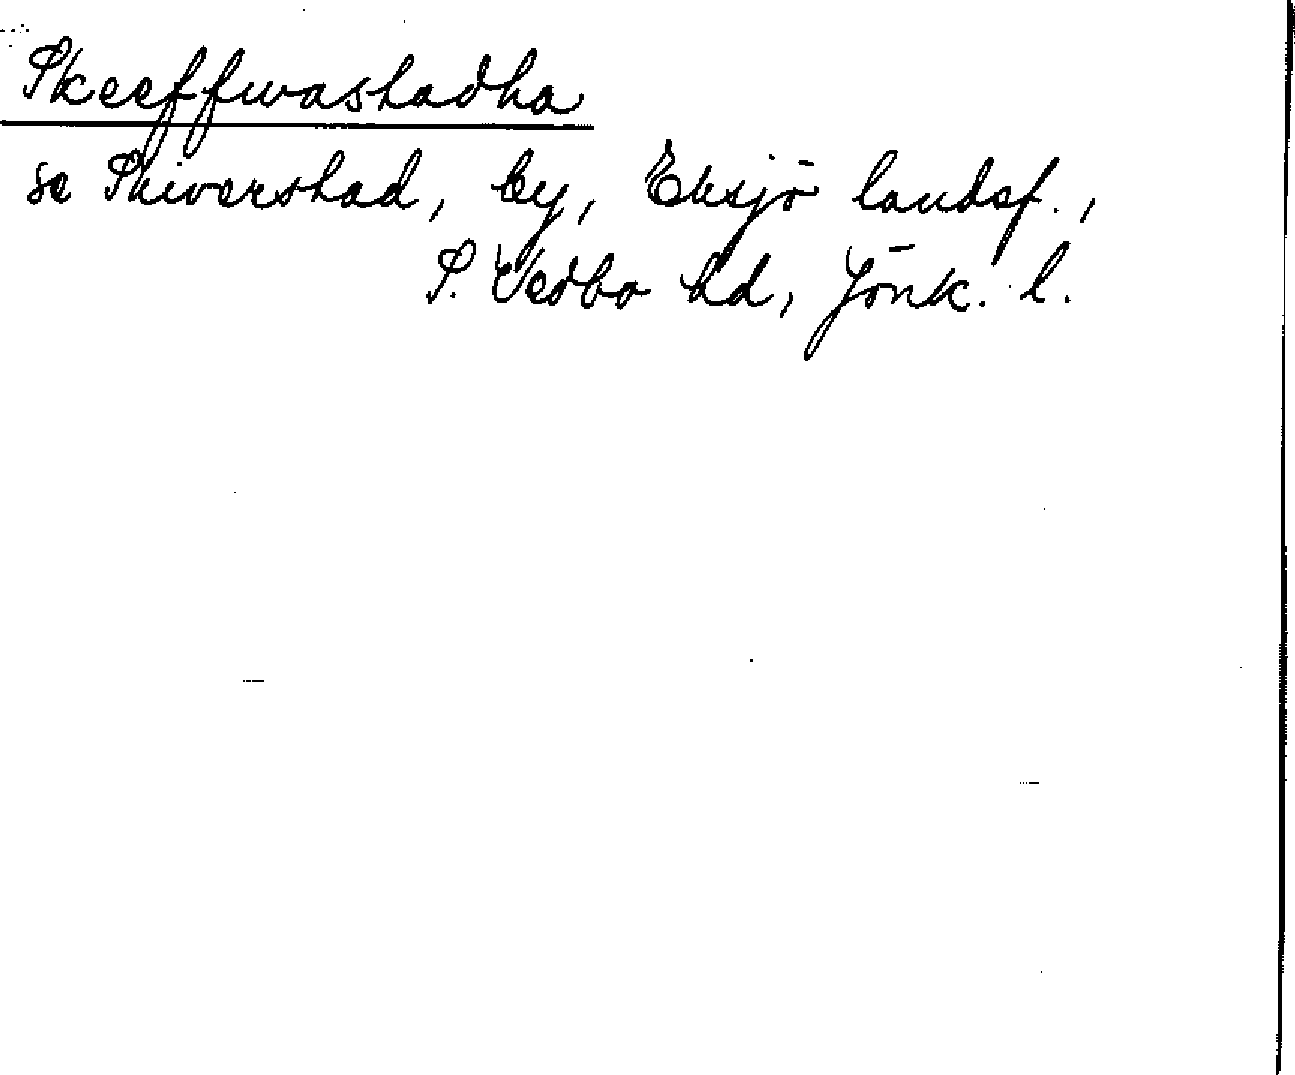 Skeeffwastadha
se Skiverstad, by, Eksjö landsf.,
S. Vedbo hd, Jönk. l.